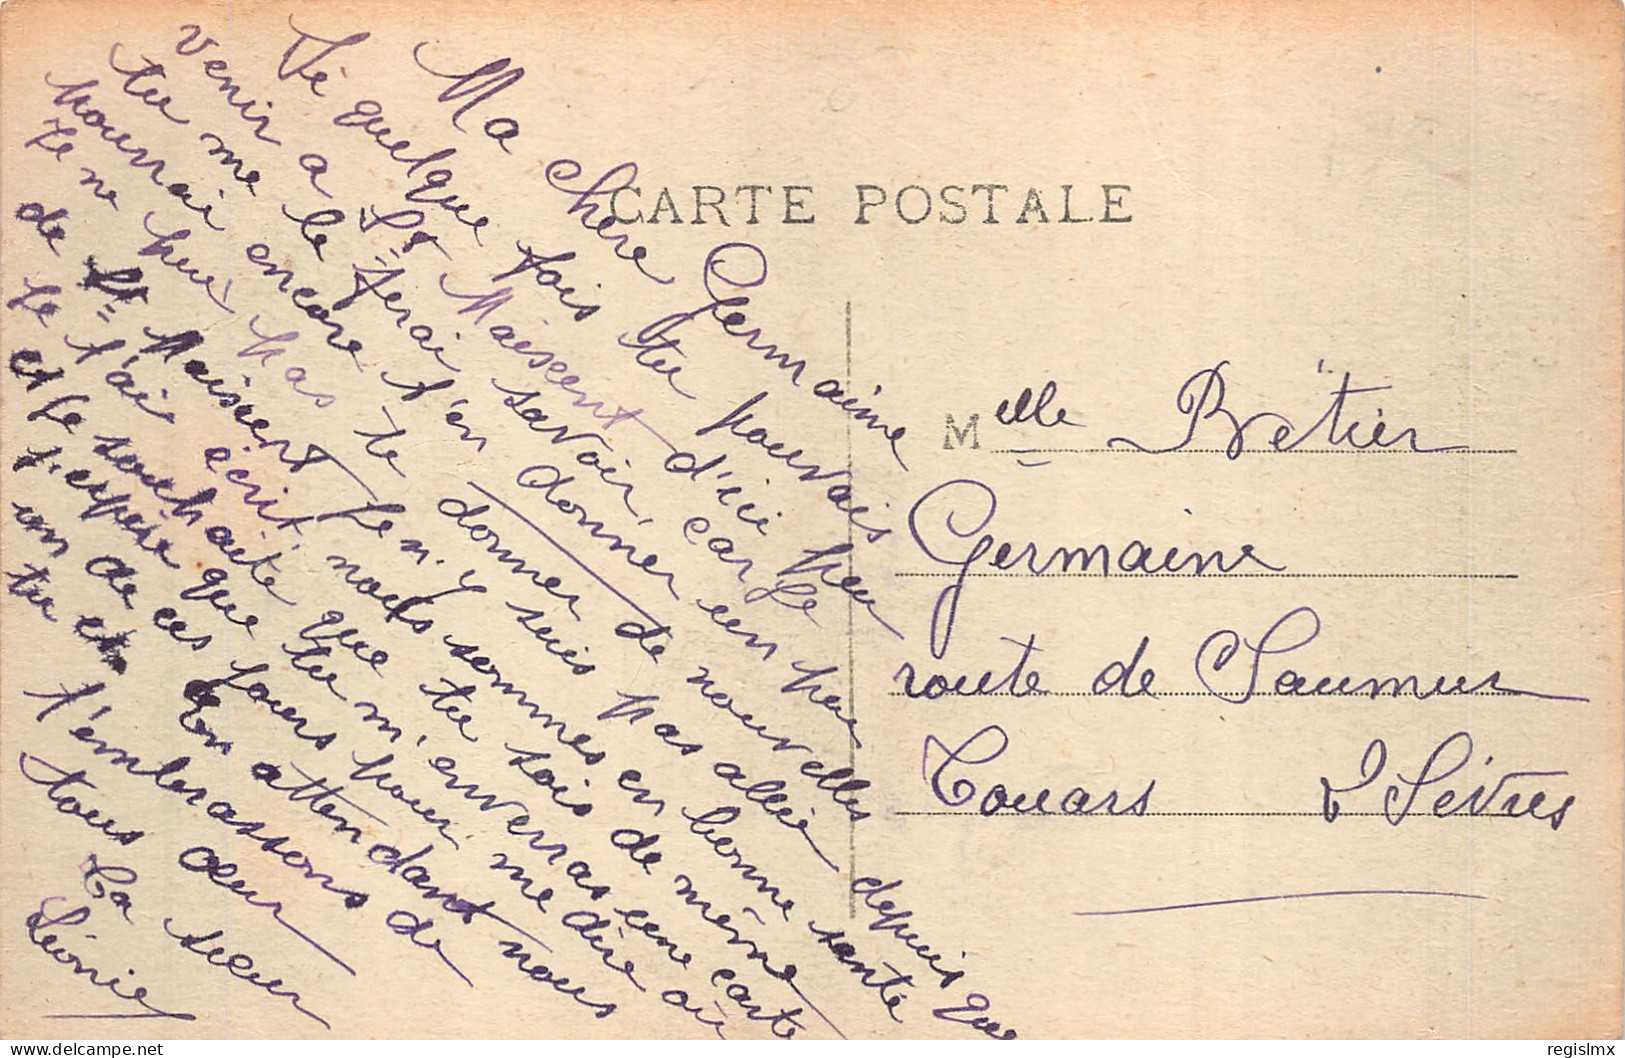 CARTE POSTALE
Ma chère Germaine
Si quelque fois tu pouvais
venir a St Maixent d'ici peu
tu me le ferai savoir, car je
pourrai encore t'en donner un peu
Je ne puis pas te donner de nouvelles depuis que
de St Maixent je n'y suis pas allée
je t'ai écrit, nous sommes en bonne santé
et je souhaite que tu sois de même
j'espère que tu m'enverras une carte
un de ces jours pour me dire où
tu et. En attendant nous
t'embrassons de
tous cœur
Ta sœur
Léonie
Melle Bétier
Germaine
route de Saumur
Touars 2 Sèvres
regislmx